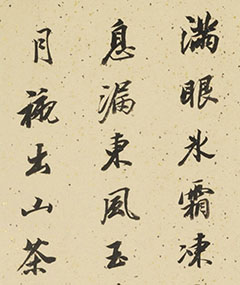 滿眼氷霜凍
息漏東風玉
月出山茶